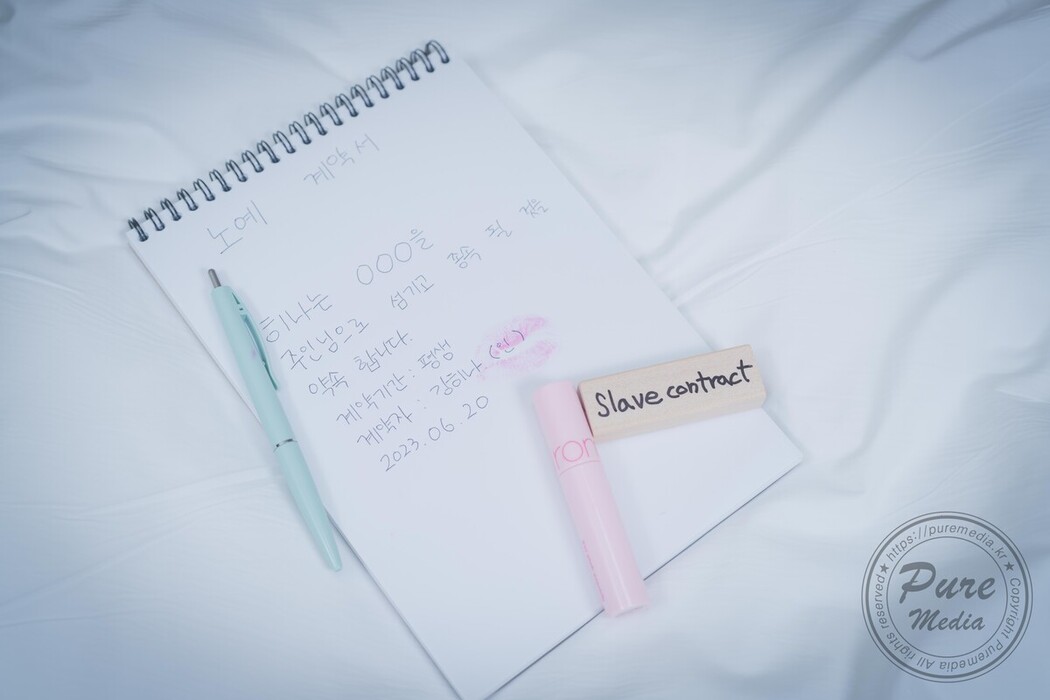 노예 계약서
히나는 OOO을
주인님으로 섬기고 종속 될 것을
약속 합니다.
계약기간 : 평생
계약자 : 강히나 (인)
2023.06.20
Slave contract
rom
https://puremedia.kr
Pure
Media
Copyright Puremedia All rights reserved